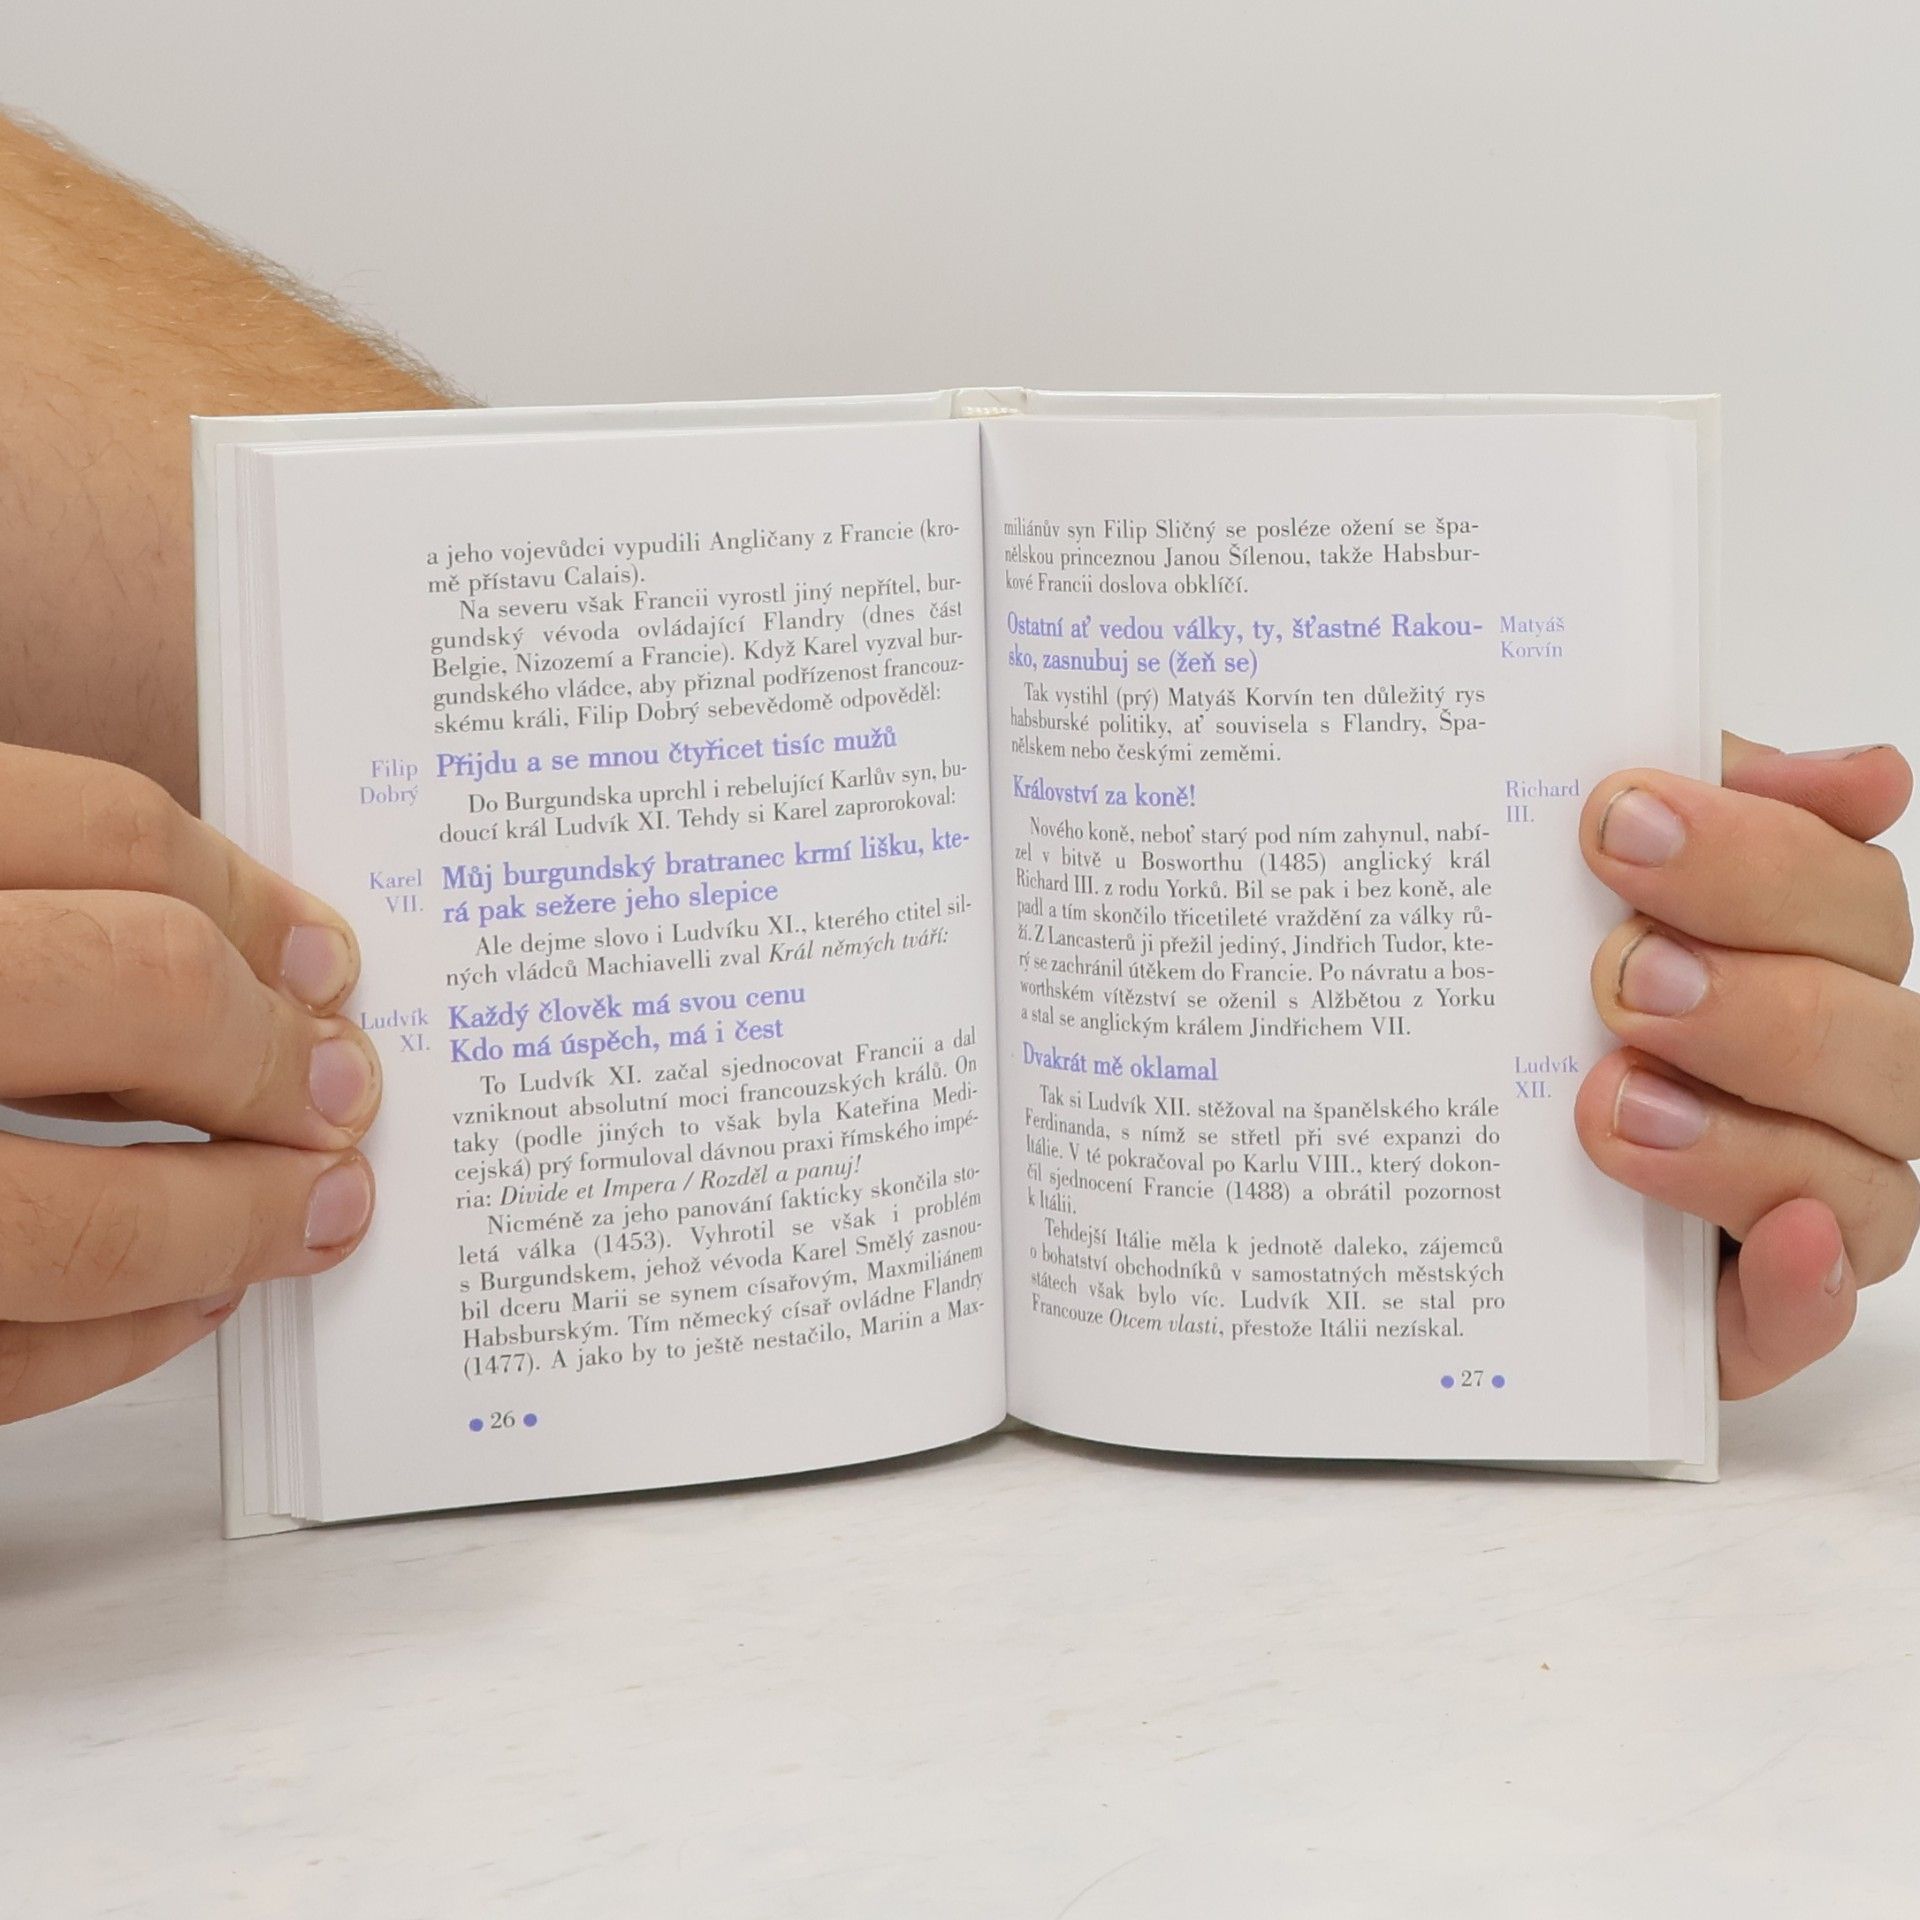 a jeho vojevůdci vypudili Angličany z Francie (kro-
mě přístavu Calais).
Na severu však Francii vyrostl jiný nepřítel, bur-
gundský vévoda ovládající Flandry (dnes část
Belgie, Nizozemí a Francie). Když Karel vyzval bur-
gundského vládce, aby přiznal podřízenost francouz-
skému králi, Filip Dobrý sebevědomě odpověděl:
Filip
Dobrý
Přijdu a se mnou čtyřicet tisíc mužů
Do Burgundska uprchl i rebelující Karlův syn, bu-
doucí král Ludvík XI. Tehdy si Karel zaprorokoval:
Karel
VII.
Můj burgundský bratranec krmí lišku, kte-
rá pak sežere jeho slepice
Ale dejme slovo i Ludvíku XI., kterého ctitel sil-
ných vládců Machiavelli zval Král němých tváří:
Ludvík
XI.
Každý člověk má svou cenu
Kdo má úspěch, má i čest
To Ludvík XI. začal sjednocovat Francii a dal
vzniknout absolutní moci francouzských králů. On
taky (podle jiných to však byla Kateřina Medi-
cejská) prý formuloval dávnou praxi římského impé-
ria: Divide et Impera / Rozděl a panuj!
Nicméně za jeho panování fakticky skončila sto-
letá válka (1453). Vyhrotil se však i problém
s Burgundskem, jehož vévoda Karel Smělý zasnou-
bil dceru Marii se synem císařovým, Maxmiliánem
Habsburským. Tím německý císař ovládne Flandry
(1477). A jako by to ještě nestačilo, Mariin a Max-
26
miliánův syn Filip Sličný se posléze ožení se špa-
nělskou princeznou Janou Šílenou, takže Habsbur-
kové Francii doslova obklíčí.
Ostatní ať vedou války, ty, šťastné Rakou-
sko, zasnubuj se (žeň se)
Matyáš
Korvín
Tak vystihl (prý) Matyáš Korvín ten důležitý rys
habsburské politiky, ať souvisela s Flandry, Špa-
nělskem nebo českými zeměmi.
Království za koně!
Richard
III.
Nového koně, neboť starý pod ním zahynul, nabí-
zel v bitvě u Bosworthu (1485) anglický král
Richard III. z rodu Yorků. Bil se pak i bez koně, ale
padl a tím skončilo třicetileté vraždění za války rů-
ží. Z Lancasterů ji přežil jediný, Jindřich Tudor, kte-
rý se zachránil útěkem do Francie. Po návratu a bos-
worthském vítězství se oženil s Alžbětou z Yorku
a stal se anglickým králem Jindřichem VII.
Dvakrát mě oklamal
Ludvík
XII.
Tak si Ludvík XII. stěžoval na španělského krále
Ferdinanda, s nímž se střetl při své expanzi do
Itálie. V té pokračoval po Karlu VIII., který dokon-
čil sjednocení Francie (1488) a obrátil pozornost
k Itálii.
Tehdejší Itálie měla k jednotě daleko, zájemců
o bohatství obchodníků v samostatných městských
státech však bylo víc. Ludvík XII. se stal pro
Francouze Otcem vlasti, přestože Itálii nezískal.
27